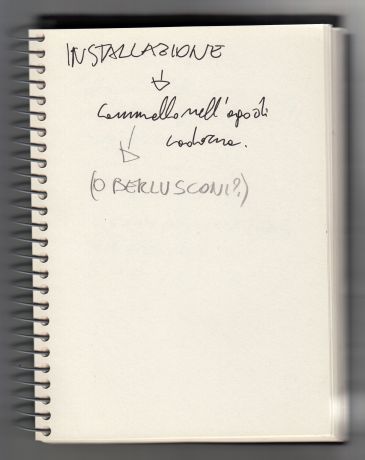 INSTALLAZIONE
Cammello nell'ago di
cadorna.
(O BERLUSCONI?)